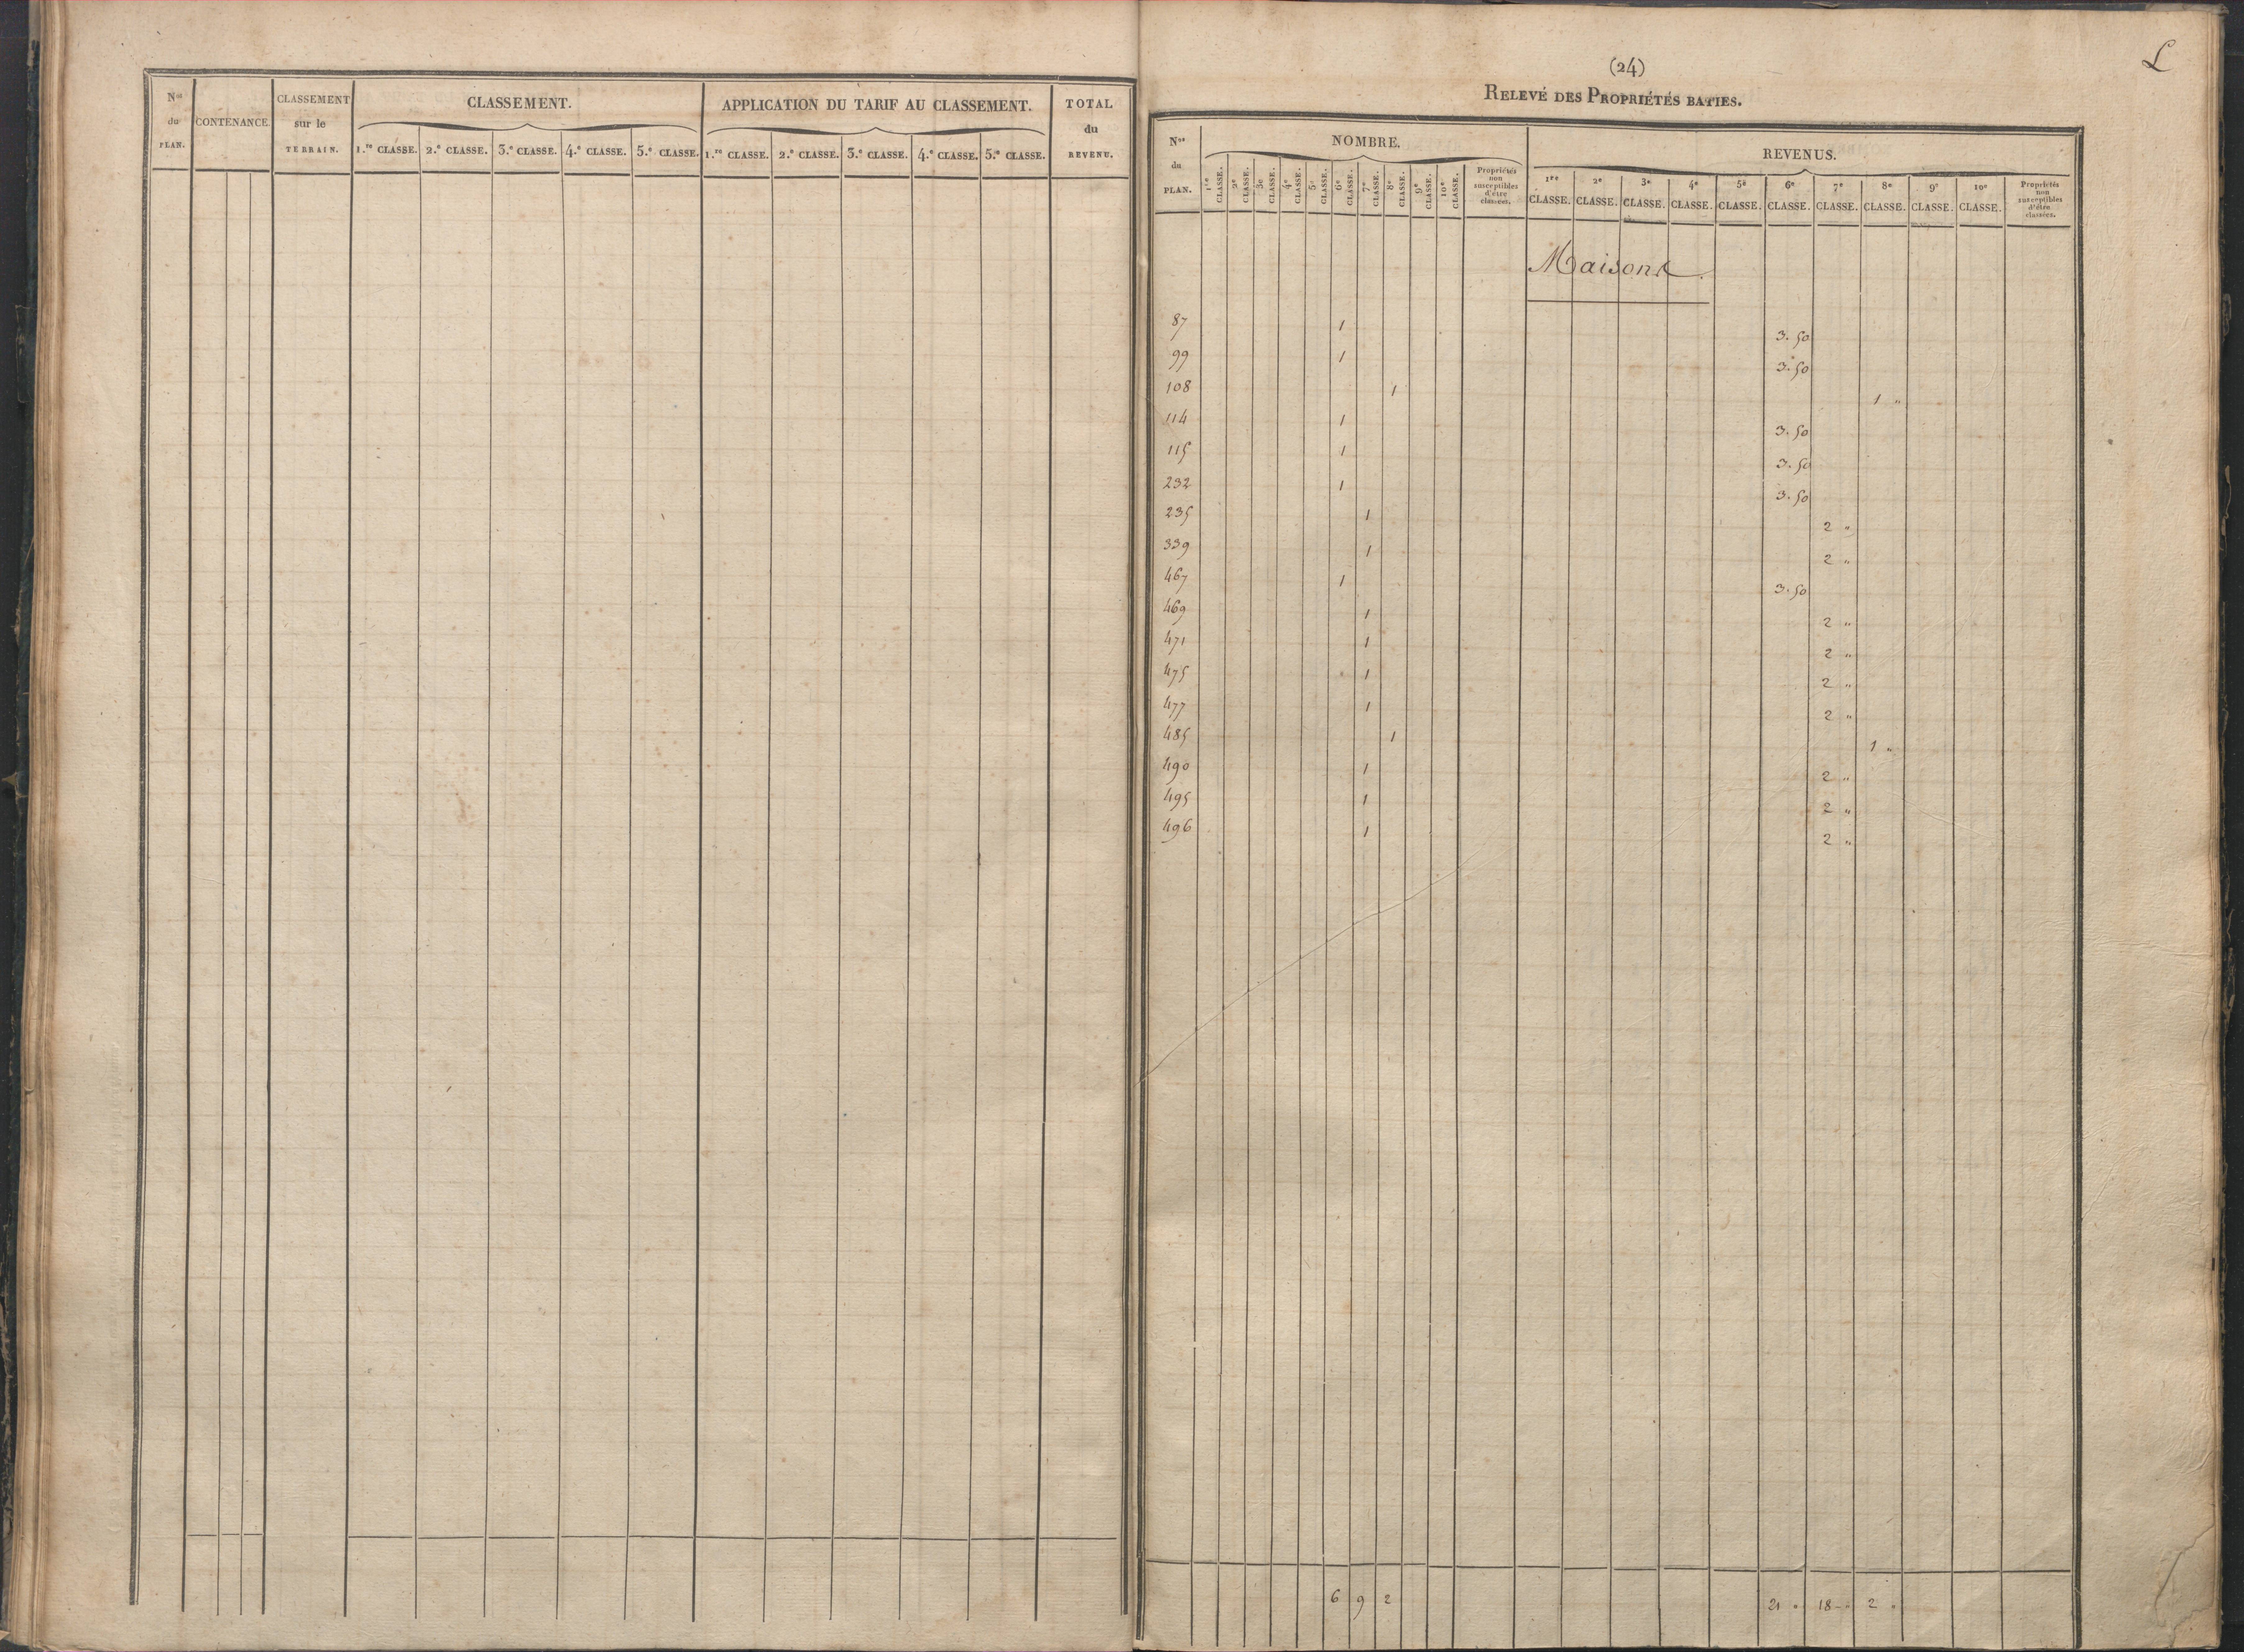 Nos du PLAN.
CONTENANCE.
CLASSEMENT sur le TERRAIN.
CLASSEMENT.
1.re CLASSE. 2.e CLASSE. 3.e CLASSE. 4.e CLASSE. 5.e CLASSE.
APPLICATION DU TARIF AU CLASSEMENT.
1.re CLASSE. 2.e CLASSE. 3.e CLASSE. 4.e CLASSE. 5.e CLASSE.
TOTAL du REVENU.
L
(24)
RELEVÉ DES PROPRIÉTÉS BATIES.
Nos du PLAN.
NOMBRE.
1re CLASSE. 2e CLASSE. 3e CLASSE. 4e CLASSE. 5e CLASSE. 6e CLASSE. 7e CLASSE. 8e CLASSE. 9e CLASSE. 10e CLASSE. Propriétés non susceptibles d'être classées.
REVENUS.
1re CLASSE. 2e CLASSE. 3e CLASSE. 4e CLASSE. 5e CLASSE. 6e CLASSE. 7e CLASSE. 8e CLASSE. 9e CLASSE. 10e CLASSE. Propriétés non susceptibles d'être classées.
Maisons.
87 1 3.50
99 1 3.50
108 1 1 "
114 1 3.50
115 1 3.50
232 1 3.50
235 1 2 "
339 1 2 "
467 1 3.50
469 1 2 "
471 1 2 "
475 1 2 "
477 1 2 "
485 1 1 "
490 1 2 "
495 1 2 "
496 1 2 "
6 9 2 21 " 18 - " 2 "